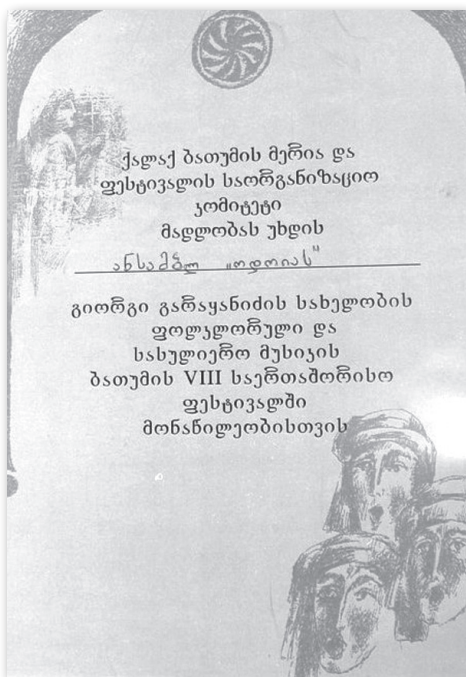 ქალაქ ბათუმის მერია და
ფესტივალის საორგანიზაციო
კომიტეტი
მადლობას უხდის
ანსამბლ „ოდოიას"
გიორგი გარაყანიძის სახელობის
ფოლკლორული და
სასულიერო მუსიკის
ბათუმის VIII საერთაშორისო
ფესტივალში
მონაწილეობისთვის